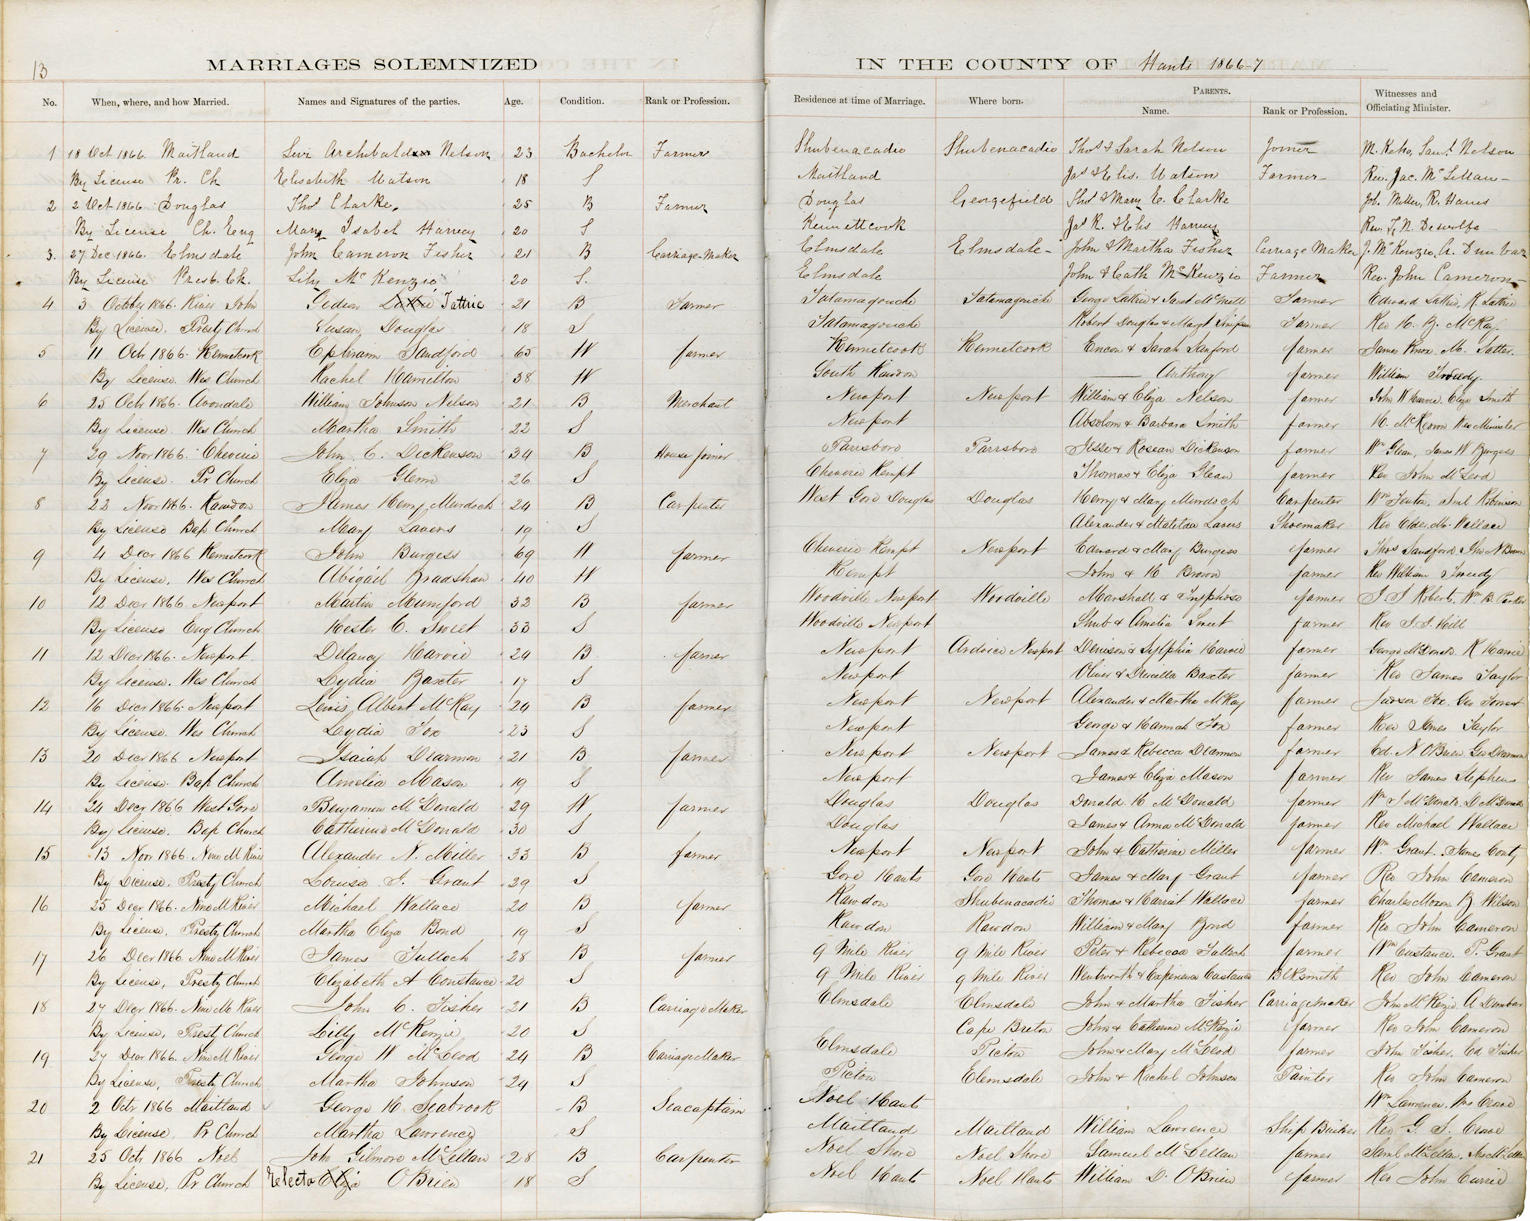 13
MARRIAGES SOLEMNIZED IN THE COUNTY OF Hants 1866-7
No. When, where, and how Married. Names and Signatures of the parties. Age. Condition. Rank or Profession. Residence at time of Marriage. Where born. PARENTS. Name. Rank or Profession. Witnesses and Officiating Minister.
1 18 Oct 1866 Maitland Levi Archibald Nelson 23 Bachelor Farmer Shubenacadie Shubenacadie Thos & Sarah Nelson Joiner M. Keho, Saml. Nelson
By License Pr. Ch Elisabeth Watson 18 S Maitland Jas & Elis. Watson Farmer Rev. Jac. McLellan
2 2 Oct 1866 Douglas Thos Clarke 25 B Farmer Douglas Georgefield Thos & Mary E. Clarke Joh. Miller, R. Hanes
By License Ch. Eng Mary Isabel Harvey 20 S Kennettcook Jas R. & Elis Harvey Rev. Desvolfe
3 27 Dec 1866 Elmsdale John Cameron Fisher 21 B Carriage-Maker Elmsdale Elmsdale John & Martha Fisher Carriage Maker J. McKenzie, A. Dunbar
By License Presb. Ch. Lily McKenzie 20 S. Elmsdale John & Cath McKenzie Farmer Rev. John Cameron
4 3 Octobr 1866 River John Gedion Tattrie 21 B Farmer Tatamagouche Tatamagouche George Lattrie & Janet McNeill Farmer Edward Lattrie, R. Lattrie
By License. Presty Church Susan Douglas 18 S Tatamagouche Robert Douglas & Margt Simpson Farmer Rev H. B. McKay
5 11 Octr 1866 Kennetcook Ephraim Sandford 65 W farmer Kennetcook Kennetcook Encon & Sarah Sanford farmer James Knox M. Salter.
By License Wes Church Rachel Hamilton 38 W South Rawdon Anthony farmer William Tweedy.
6 25 Octr 1866 Avondale William Johnson Nelson 21 B Merchant Newport Newport William & Eliza Nelson farmer John W Harvie, Eliza Smith
By License Wes Church Martha Smith 22 S Newport Absolom & Barbara Smith farmer H. McKeown Wes Minister
7 29 Novr 1866 Cheverie John C. Dickenson 34 B House joiner Parrsboro Parrsboro Jesse & Rosean Dickenson farmer Wm Glean, James W Burgess
By License Pr Church Eliza Glenn 26 S Cheverie Kempt Thomas & Eliza Glean farmer Rev John McLeod
8 22 Novr 1866 Rawdon James Henry Murdoch 24 B Carpenter West Gore Douglas Douglas Henry & Mary Murdoch Carpenter Wm Fenton, Saml Robinson
By License Bap Church Mary Lavers 19 S Alexander & Matilda Lavers Shoemaker Rev Elder M. Wallace
9 4 Decr 1866 Kennetcook John Burgess 69 W farmer Cheverie Kempt Newport Edward & Mary Burgess farmer Thos Sandford Jho N Brown
By License, Wes Church Abigail Bradshaw 40 W Kempt John & H Brown farmer Rev William Tweedy
10 12 Decr 1866 Newport Martin Mumford 32 B farmer Woodville Newport Woodville Marshall & Josephose farmer J J Roberts, Wm B. Parker
By License Eng Church Hester C. Smeet 33 S Woodville Newport Shub & Amelia Smeet farmer Rev J. J. Hill
11 12 Decr 1866 Newport Delancy Harvie 24 B farmer Newport Ardoise Newport Denison & Sylphia Harvie farmer George McDonald R Harvie
By License. Wes Church Lydia Baxter 17 S Newport Oliver & Drucilla Baxter farmer Rev James Taylor
12 16 Decr 1866 Newport Lewis Albert McKay 24 B farmer Newport Newport Alexander & Martha McKay farmer Judson Fox, Geo Forrest
By License. Wes Church Lydia Fox 23 S Newport George & Hannah Fox farmer Rev James Taylor
13 20 Decr 1866 Newport Isaiah Dearmon 21 B farmer Newport Newport James & Rebecca Dearmon farmer Ed. N OBrien Geo Dearmon
By License. Bap Church Amelia Mason 19 S Newport James & Eliza Mason farmer Rev James Stephens
14 24 Decr 1866 West Gore Benjamin McDonald 29 W farmer Douglas Douglas Donald H McDonald farmer Wm J McDonald. D McDonald
By License. Bap Church Catherine McDonald 30 S Douglas James & Anna McDonald farmer Rev Michael Wallace
15 13 Novr 1866 Nine M River Alexander N. Miller 33 B farmer Newport Newport John & Catherine Miller farmer Wm Grant. James Conty
By License, Presty Church Louisa J. Grant 29 S Gore Hants Gore Hants James & Mary Grant farmer Rev John Cameron
16 25 Decr 1866 Nine M River Michael Wallace 20 B farmer Rawdon Shubenacadie Thomas & Harriet Wallace farmer Charles Moxon B. Wilson
By License, Presty Church Martha Eliza Bond 19 S Rawdon Rawdon William & Mary Bond farmer Rev John Cameron
17 26 Decr 1866 Nine M River James Tulloch 28 B farmer 9 Mile River 9 Mile River Peter & Rebecca Tulloch farmer Wm Custance, P. Grant
By License, Presty Church Elizabeth A Constance 20 S 9 Mile River 9 Mile River Wentworth & Experience Custance Blksmith Rev John Cameron
18 27 Decr 1866 Nine M River John C. Fisher 21 B Carriage Maker Elmsdale Elmsdale John & Martha Fisher Carriagemaker John McKenzie A Dunbar
By License, Presty Church Lilly McKenzie 20 S Cape Breton John & Catherine McKenzie farmer Rev John Cameron
19 27 Decr 1866 Nine M River George W McLeod 24 B Carriage Maker Elmsdale Pictou John & Mary McLeod farmer John Fisher, Ed Fisher
By License, Presty Church Martha Johnson 24 S Pictou Elemsdale John & Rachel Johnson Painter Rev John Cameron
20 2 Octr 1866 Maitland George H. Seabrook B Seacaptain Noel Hants Wm Lawrence, Mrs Crowe
By License, Pr Church Martha Lawrence S Maitland Maitland William Lawrence Ship Builder Rev G. S. Crowe
21 25 Octr 1866 Noel Joh Gilmore McLellan 28 B Carpenter Noel Shore Noel Shore Samuel McLellan farmer Saml McLellan, Jas McLellan
By License, Pr Church Electa OBrien 18 S Noel Hants Noel Hants William D. OBrien farmer Rev John Currie